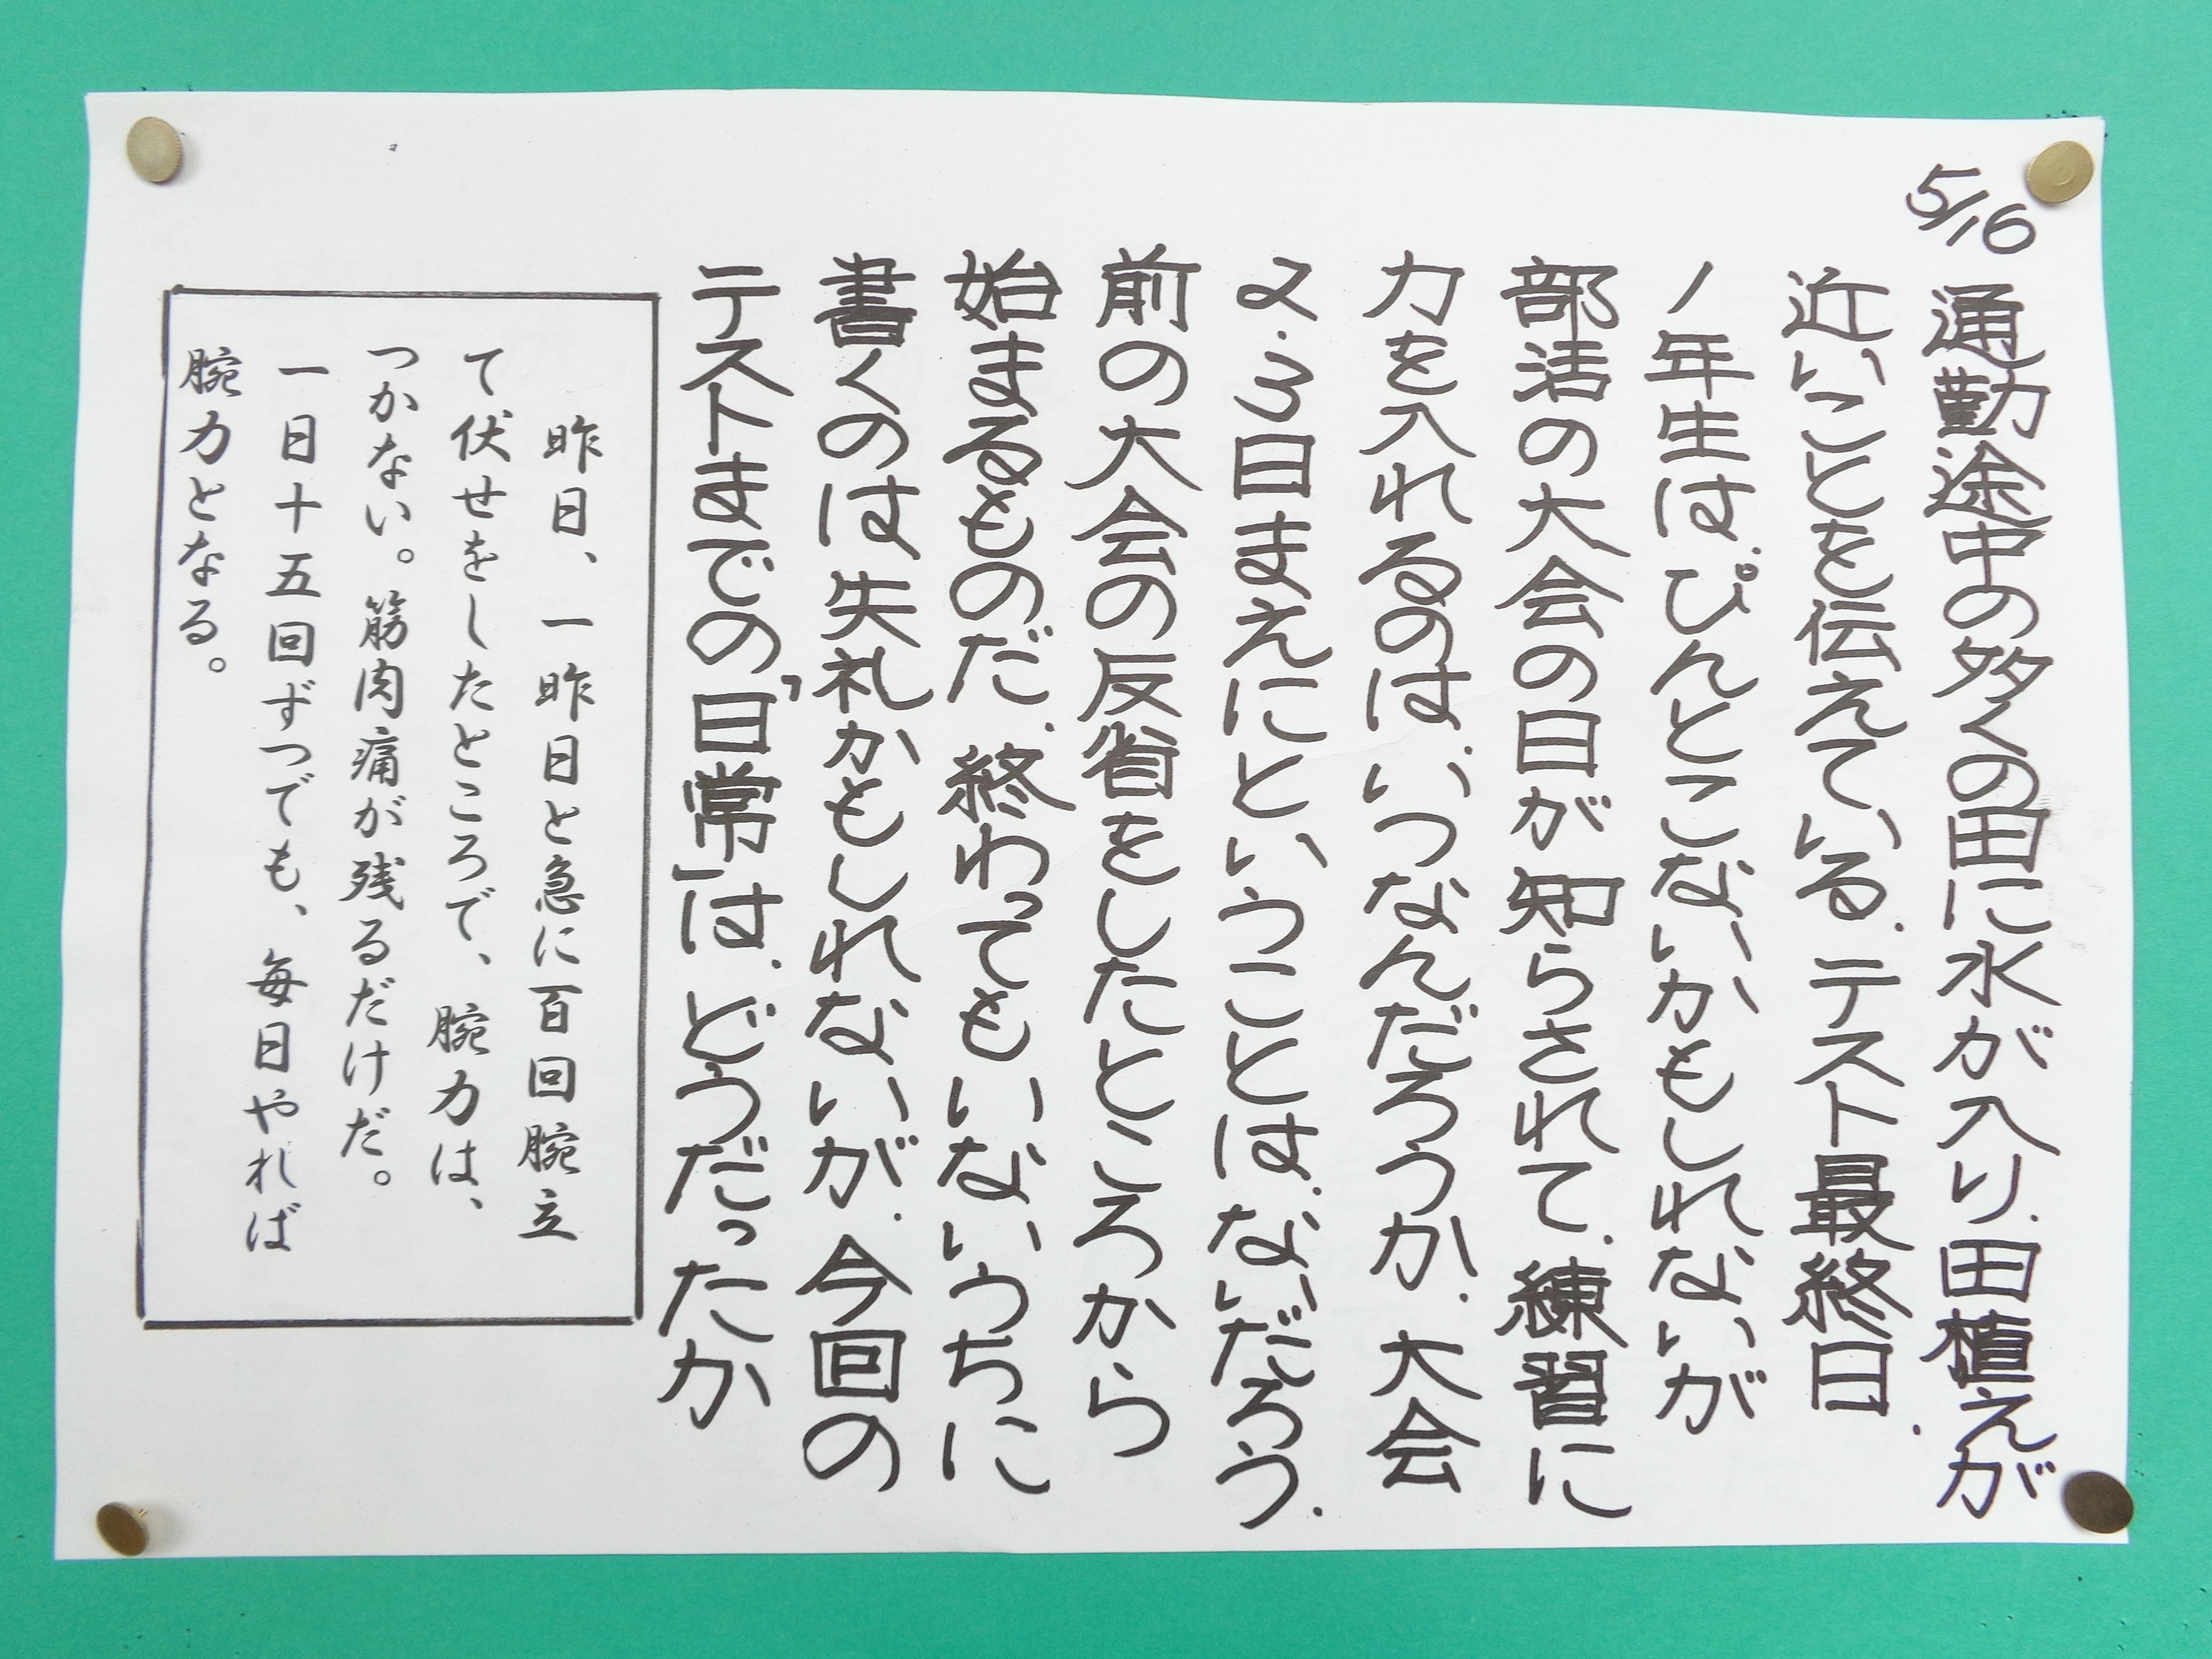 5/16
通勤途中の多くの田に水が入り.田植えが
近いことを伝えている.テスト最終日.
1年生は.ぴんとこないかもしれないが
部活の大会の日が知らされて.練習に
力を入れるのは.いつなんだろうか.大会
2.3日まえにということは.ないだろう.
前の大会の反省をしたところから
始まるものだ.終わってもいないうちに
書くのは失礼かもしれないが.今回の
テストまでの「日常」は.どうだったか
昨日、一昨日と急に百回腕立
て伏せをしたところで、腕力は、
つかない。筋肉痛が残るだけだ。
一日十五回ずつでも、毎日やれば
腕力となる。